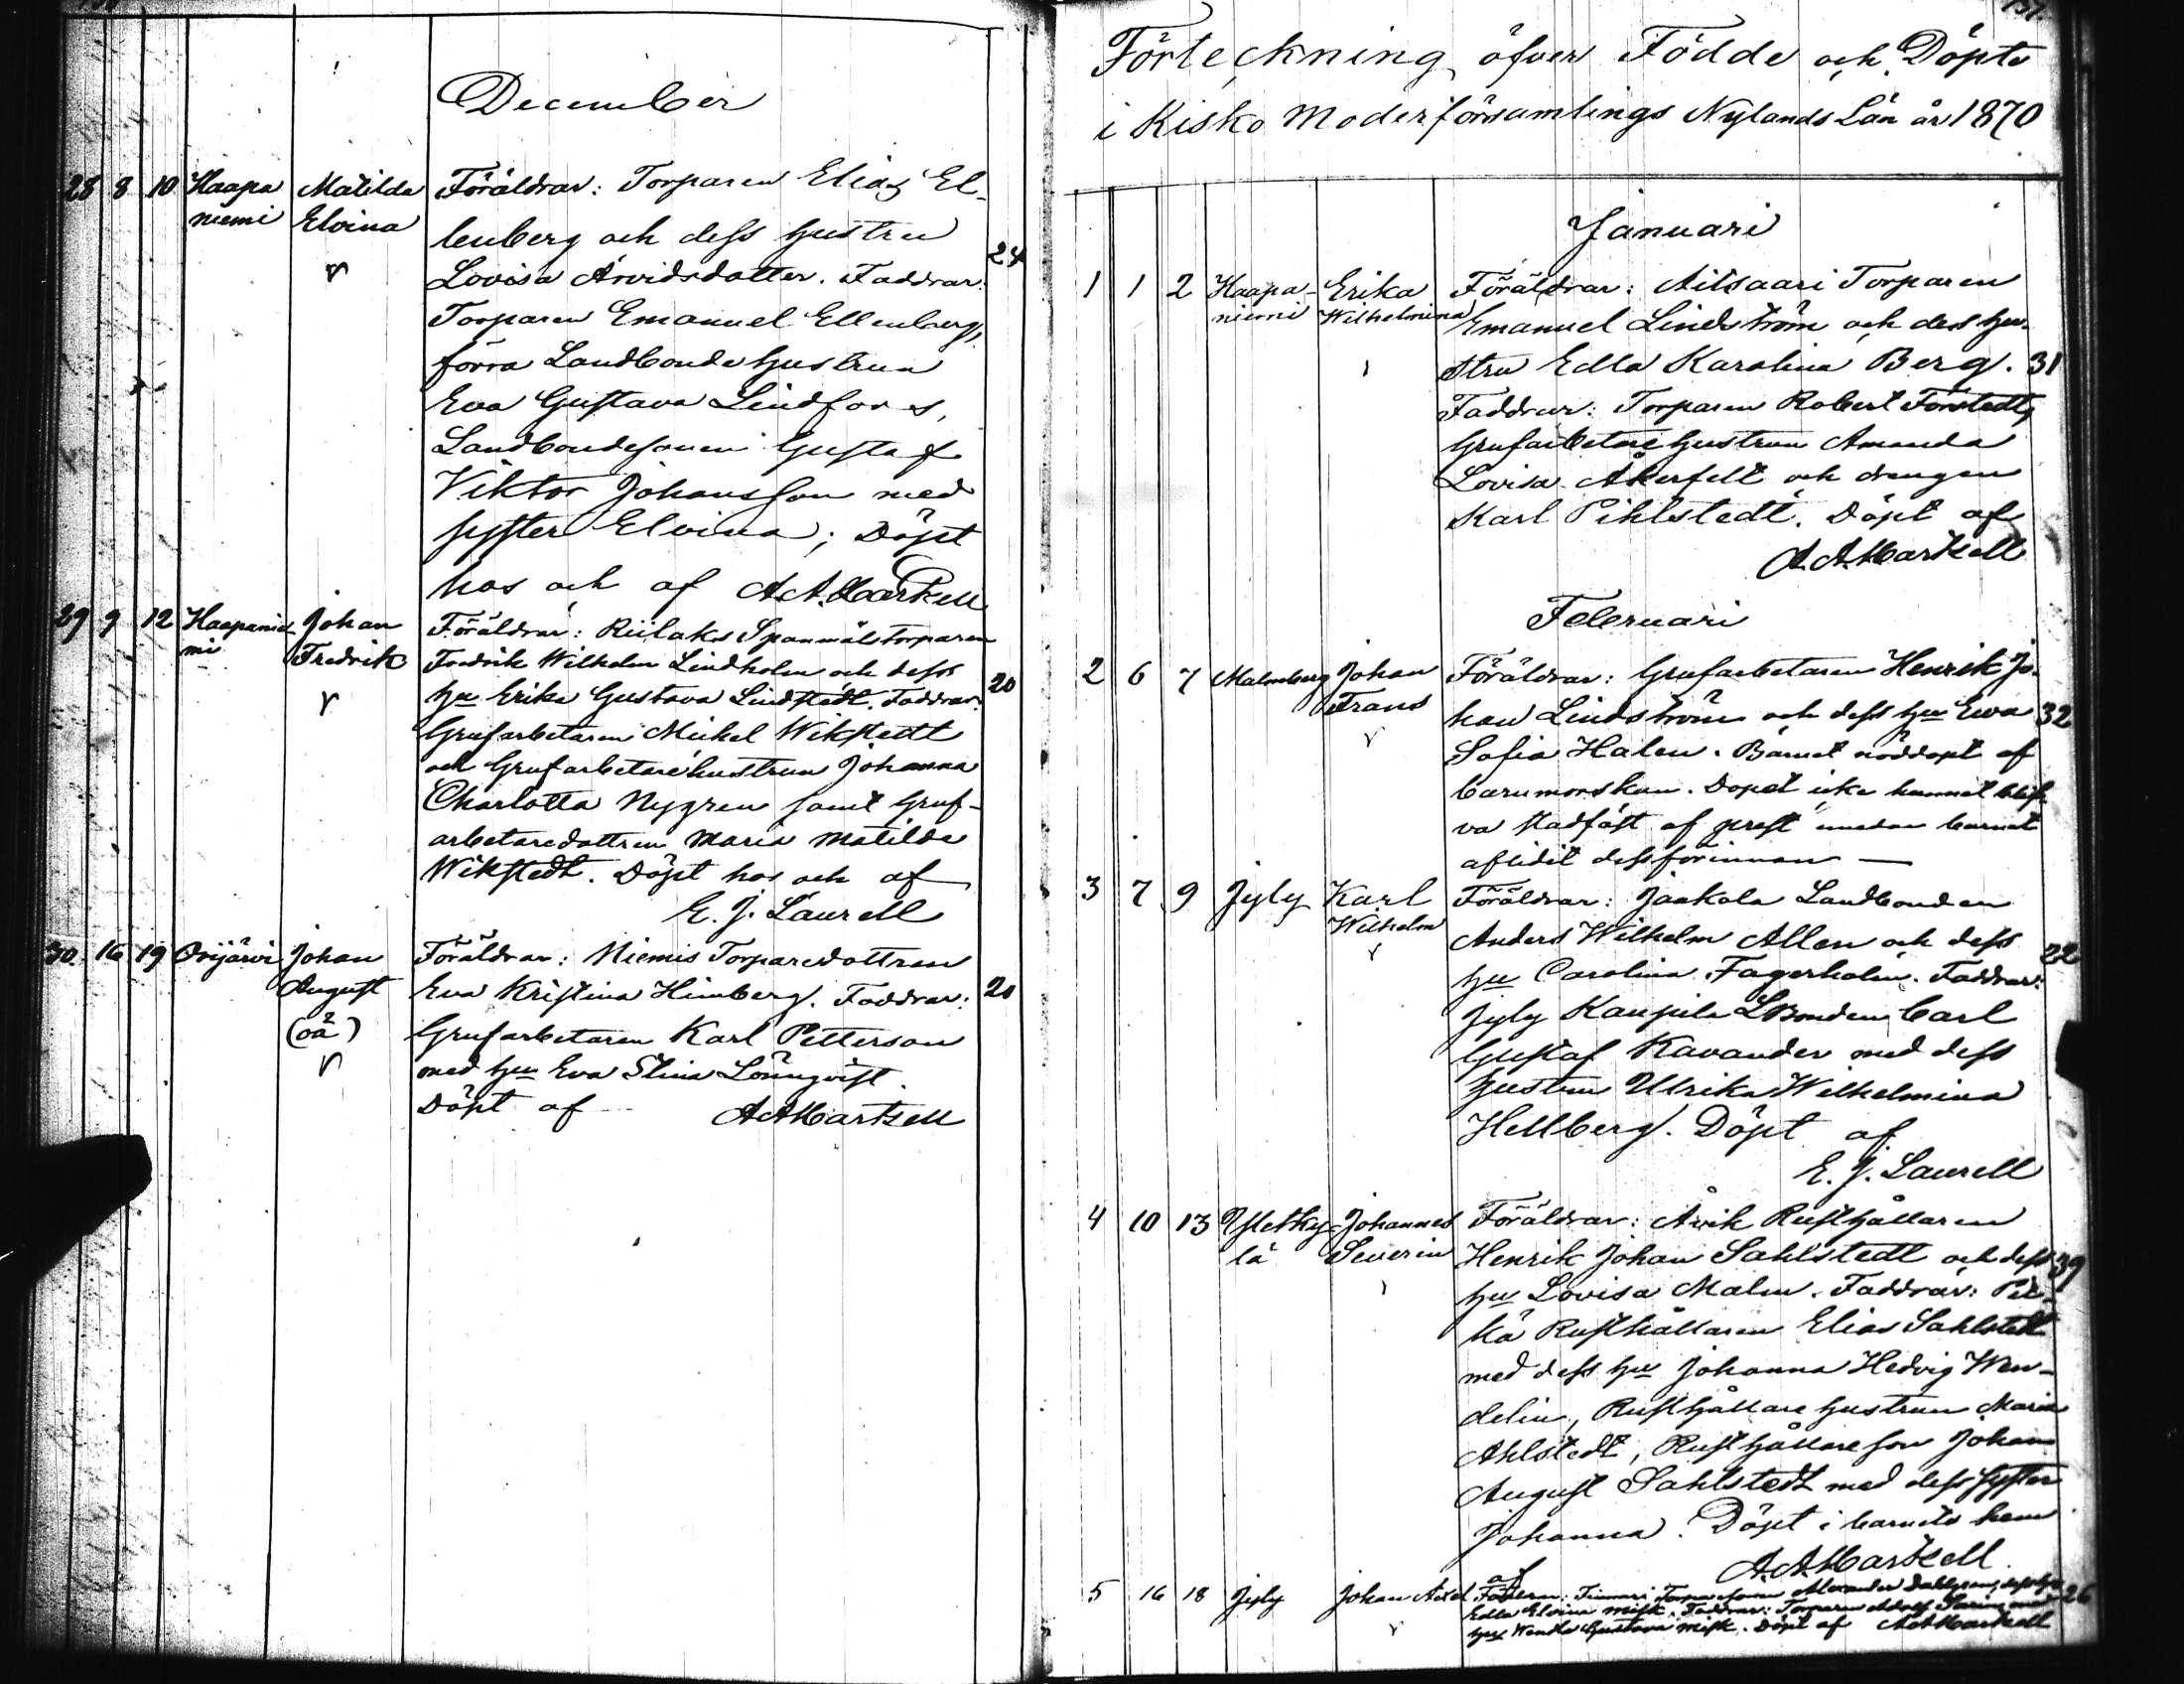 December
28 8 10 Haapa Matilda Föräldrar: Torparen Elias El-
niemi Elvina lenberg och dess hustru
Lovisa Arvidsdotter. Faddrar: 24
Torparen Emanuel Ellenberg,
förra Landbondehustrun
Eva Gustava Lindfors,
Landbondesonen Gustaf
Viktor Johansson med
syster Elvina; Döpt
hos och af A.A. Markell
29 9 12 Haapanie- Johan Föräldrar: Riilaks Spanmålstorparen
mi Fredrik Fredrik Wilhelm Lindholm och dess
hu Erika Gustava Lindstedt. Faddrar: 20
Grufarbetaren Mickel Wikstedt
och Grufarbetarehustrun Johanna
Charlotta Nygren samt Gruf-
arbetaredottren Maria Matilda
Wikstedt. Döpt hos och af
E. J. Laurell
30. 16 19 Orijärvi Johan Föräldrar: Niemis Torparedottren
August Eva Kristina Himberg. Faddrar: 20
(oä) Grufarbetaren Karl Petterson
med hu Eva Stina Lönnqvist.
Döpt af A A Markell
137.
Förteckning öfver Födde och Döpte
i Kisko Moderförsamlings Nylands Län år 1870
Januari
1 1 2 Haapa- Erika Föräldrar: Ailsaari Torparen
niemi Wilhelmina Emanuel Lindström och dess hu-
stru Edla Karolina Berg. 31
Faddrar: Torparen Robert Forstedt,
Grufarbetare hustrun Amanda
Lovisa Åkerfelt och drengen
Karl Pihlstedt. Döpt af
A. A. Markell
Februari
2 6 7 Malmberg Johan Föräldrar: Grufarbetaren Henrik Jo-
Frans han Lindström och dess hu Eva 32
Sofia Halen. Barnet nöddöpt af
barnmorskan. Dopet icke hunnat blif-
va stadfäst af prest emedan barnet
aflidit dessförinnan —
3 7 9 Jyly Karl Föräldrar: Jaakola Landbonden
Wilhelm Anders Wilhelm Allen och dess 22
hu Carolina Fagerholm. Faddrar:
Jyly Kaupila LBonden Carl
Gustaf Kavander med dess
hustru Ulrika Wilhelmina
Hellberg. Döpt af
E. J. Laurell
4 10 13 Johannes Föräldrar: Årik Rusthållaren
lä Severin Henrik Johan Sahlstedt och dess 39
hu Lovisa Malm. Faddrar:
kä Rusthållaren Elias Sahlstedt
med dess hu Johanna Hedvig Wen-
delin, Rusthållare hustrun Maria
Ahlstedt, Rusthållare son Johan
August Sahlstedt med dess syster
Johanna. Döpt i barnets hem
af A. A. Markell.
5 16 18 Jyly Johan Axel Alexander dess hu 26
Edla Elvina Misk. Faddrar: Torparen Adolf med
hu Wendla Gustava Misk. Döpt af A A Markell